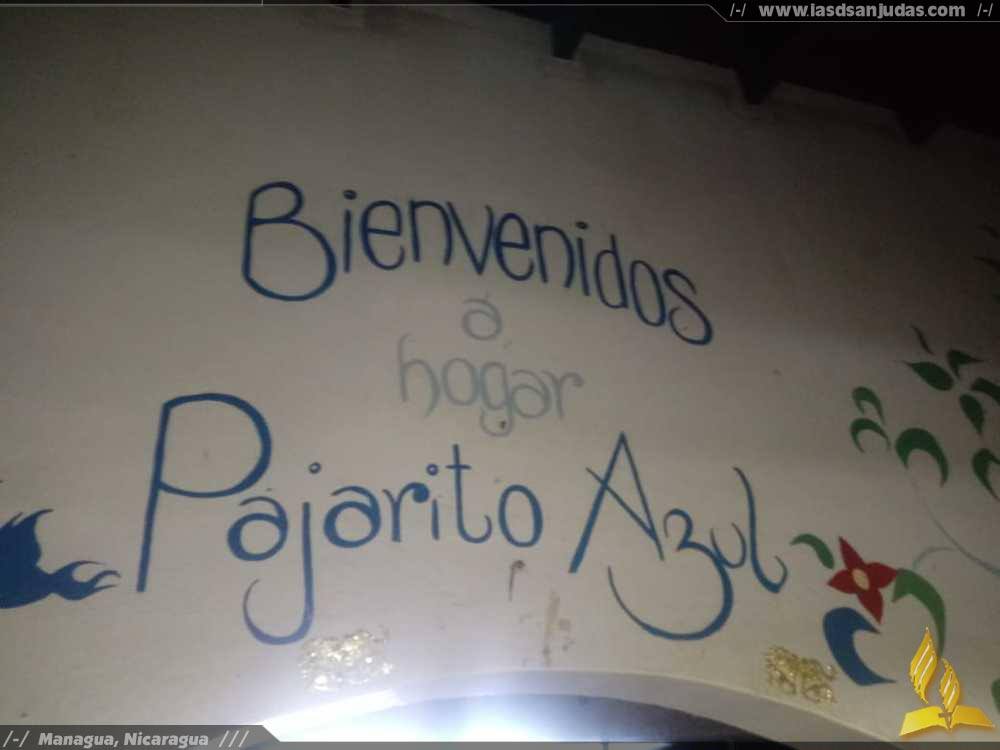 /-/ www.lasdsanjudas.com /-/
Bienvenidos
a
hogar
Pajarito Azul
/-/ Managua, Nicaragua ///